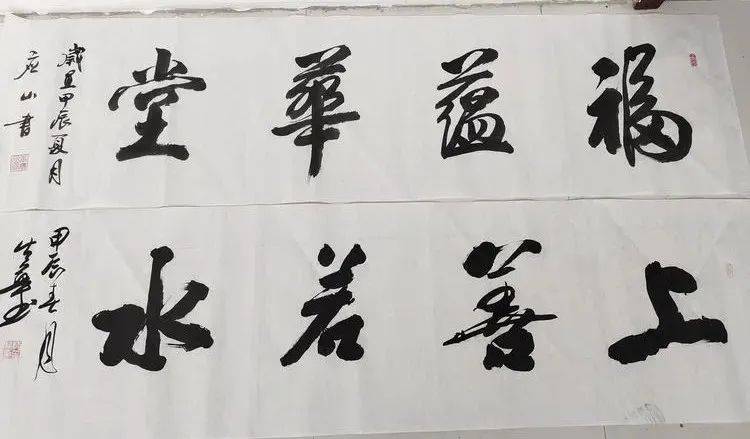 福蕴華堂
歲在甲辰夏月
应山書
上善若水
甲辰春月